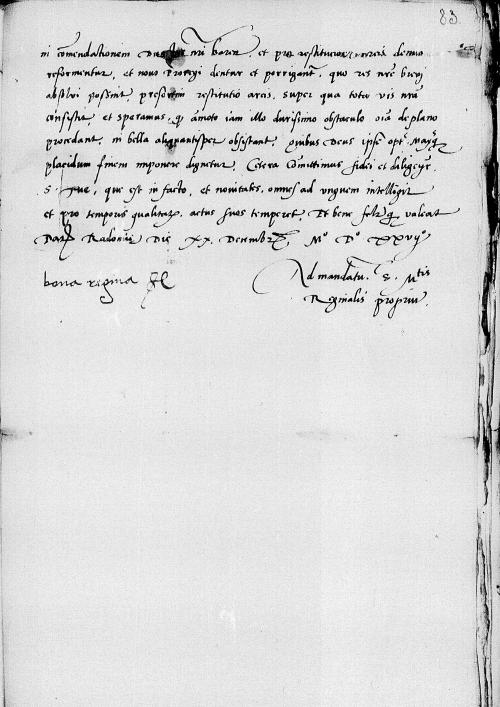 83
in cōmendationem Ducatus nr̄i baren, et pro restitucione arcis denuo
reformentur, et novi dentur et porrigant, quo res nr̄e
absolvi possint, presertim restitutio arcis, super qua tota vis nr̄a
consistit, et speramus, q amoto iam illo durissimo obstaculo oīa de plano
procedant, ni bella aliquantisper obsistant, quibus Deus ipse opt. Max.
placidum finem imponere dignetur, Cetera Comittimus fidei et diligen
S. Tue, que est in facto, et novitates, omnes ad unguem intelligit
et pro temporis qualitate, actus suos temperet, Et bene valeat
Dat Radomie Die XX Decembr, M° D° XXVII°
bona regina
Ad mandatu S. Mtis
Reginalis propriu